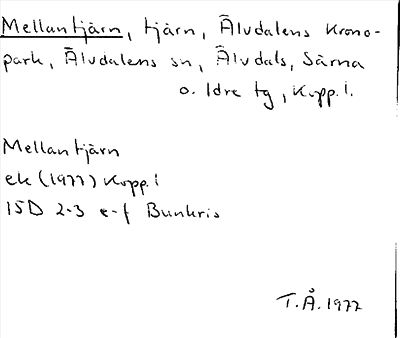 Mellantjärn, tjärn, Älvdalens krono-
park, Älvdalens sn, Älvdals, Särna
o. Idre tg, Kopp. l.
Mellantjärn
ek (1977) Kopp. l
15D 2-3 e-f Bunkris
T.Å. 1977